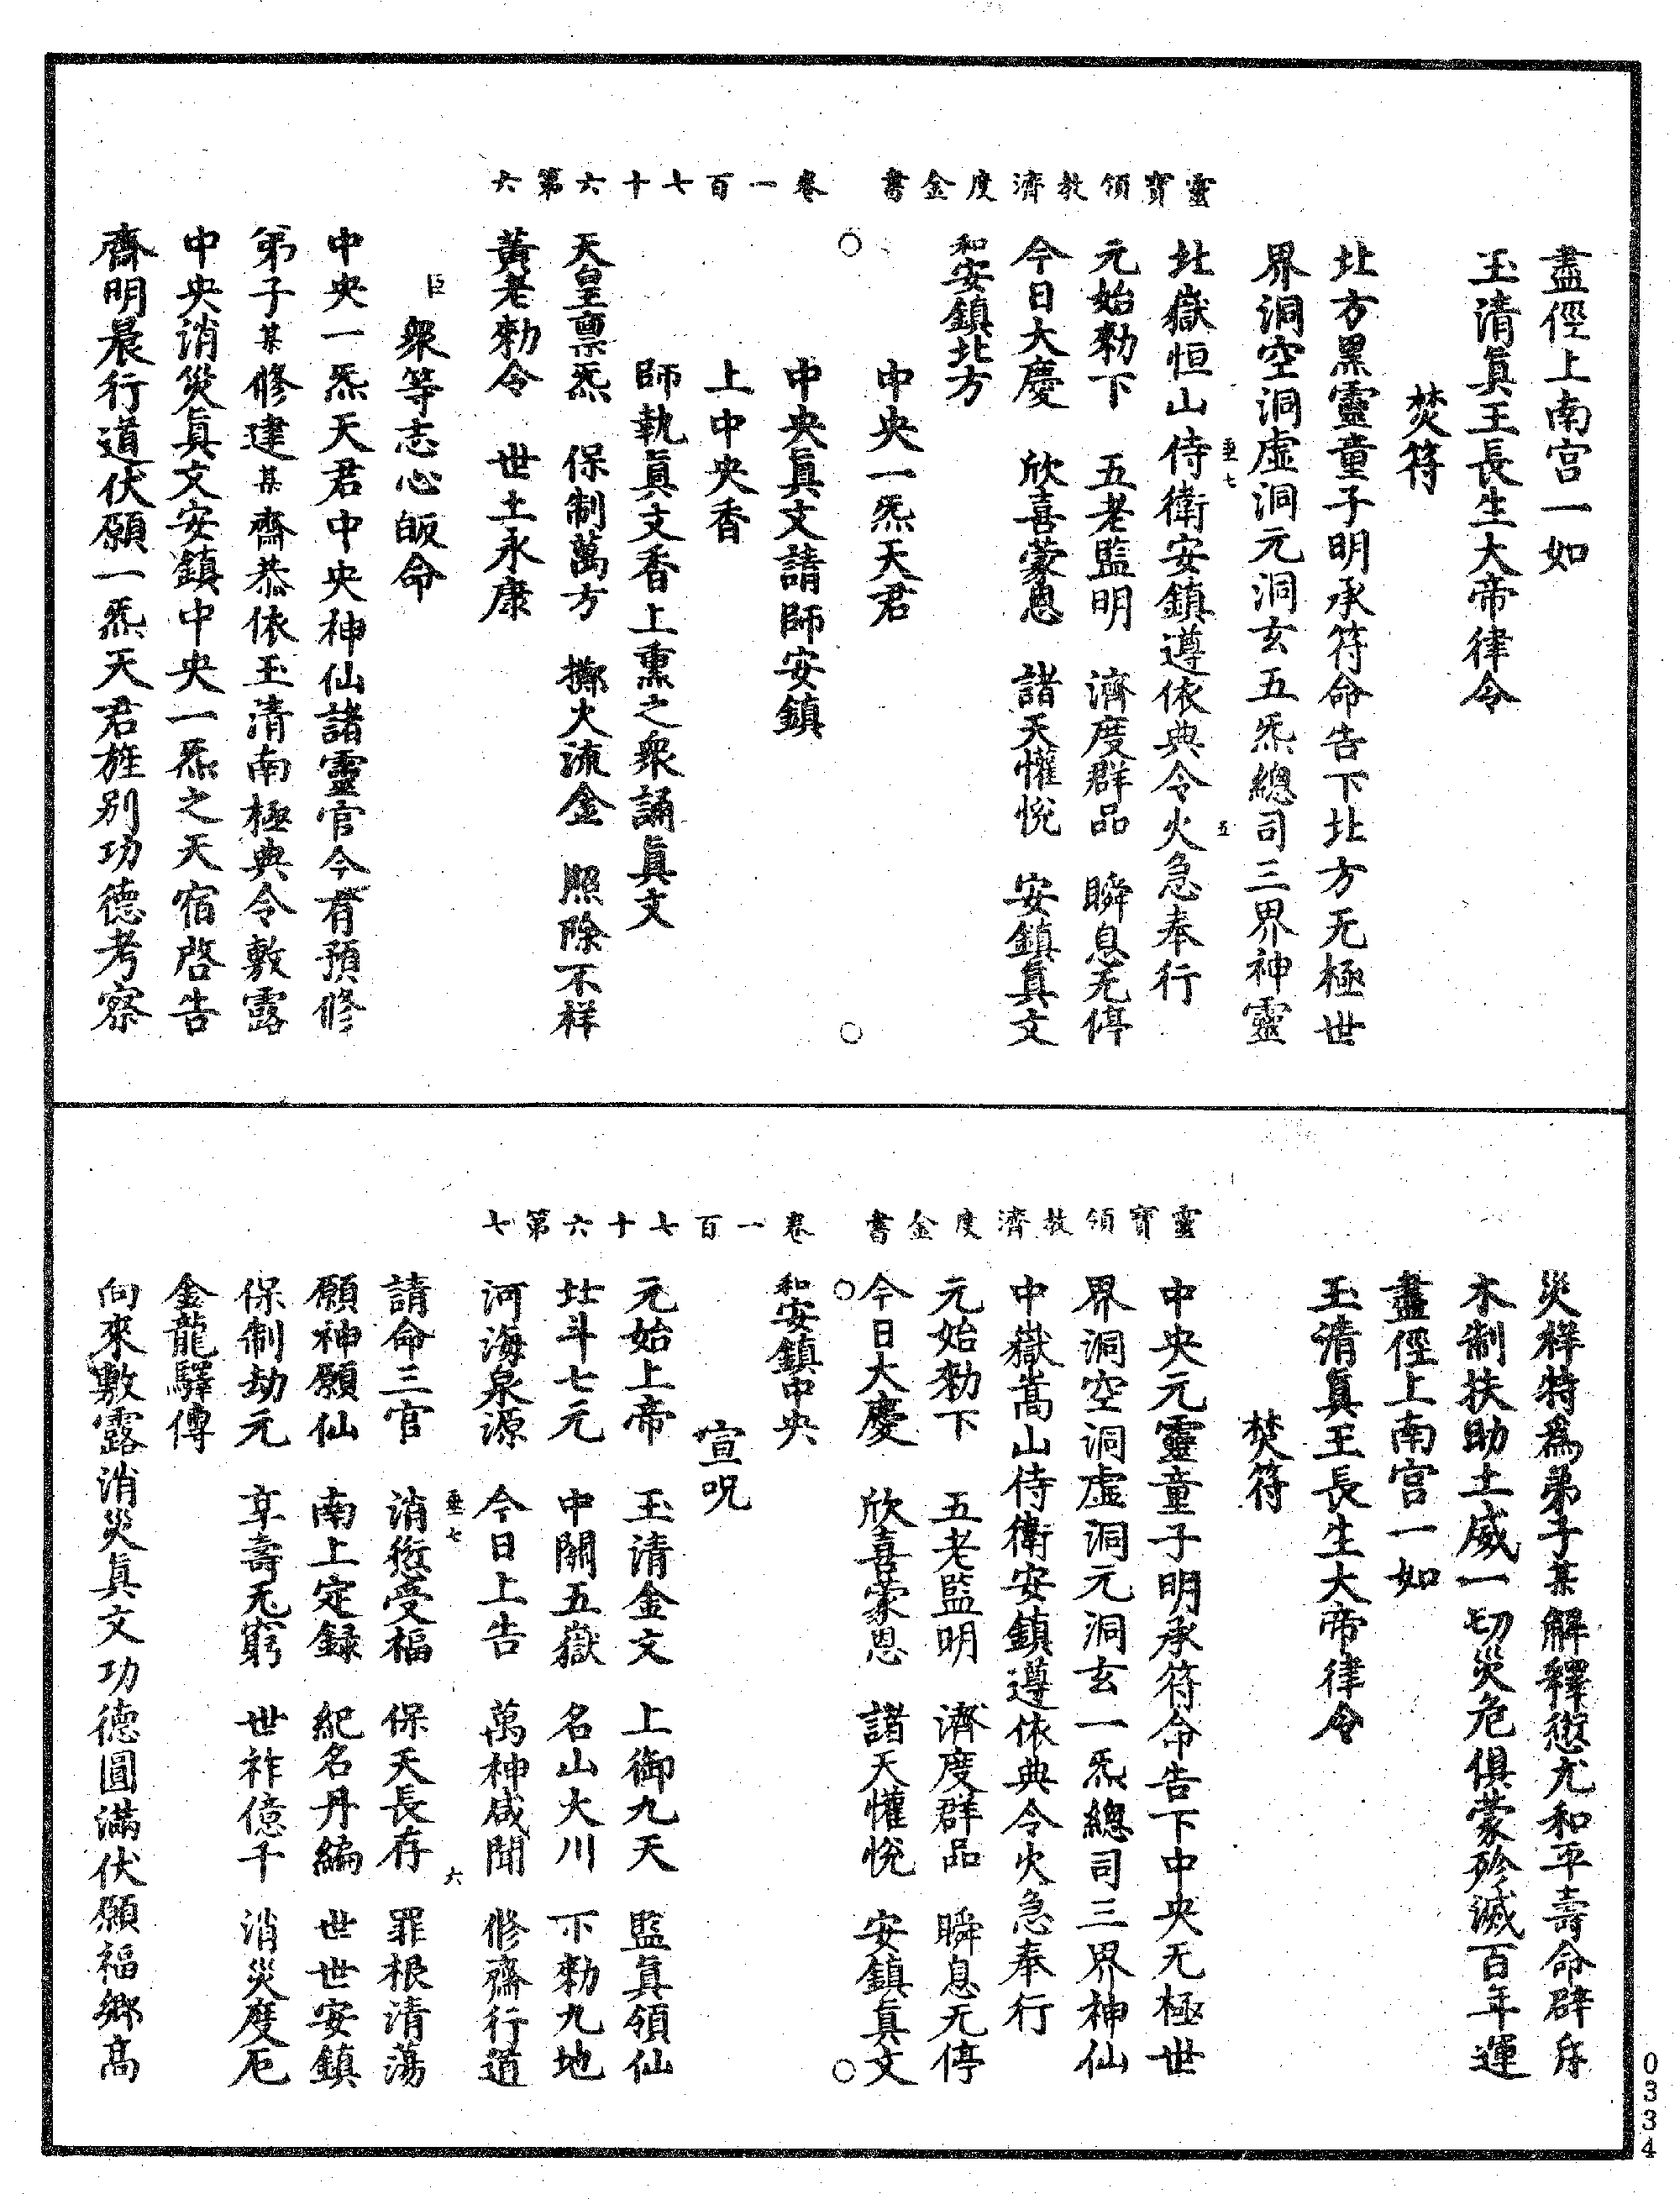 靈寶領教濟度金書　卷一百七十六第六
盡徑上南宫一如
玉清真王長生大帝律令
焚符
北方黑靈童子明承符命告下北方无極世
界洞空洞虚洞元洞玄五炁總司三界神靈
北嶽恒山侍衛安鎮遵依典令火急奉行
垂七　五
元始勑下　五老監明　濟度群品　瞬息无停
今日大慶　欣喜蒙恩　諸天懽悅　安鎮真文
和安鎮北方
○　○
中央一炁天君
中央真文請師安鎮
上中央香
師執真文香上熏之衆誦真文
天皇禀炁　保制萬方　擲火流金　照除不祥
黃老勑令　世土永康
臣衆等志心皈命
中央一炁天君中央神仙諸靈官今有預修
弟子某修建某齋恭依玉清南極典令敷露
中央消災真文安鎮中央一炁之天宿啓告
齋明晨行道伏願一炁天君旌别功德考察
靈寶領教濟度金書　卷一百七十六第七
災祥特爲弟子某解釋愆尤和平壽命辟斥
木制扶助土威一切災危俱蒙殄滅百年運
盡徑上南宫一如
玉清真王長生大帝律令
焚符
中央元靈童子明承符命告下中央无極世
界洞空洞虚洞元洞玄一炁總司三界神仙
中嶽嵩山侍衛安鎮遵依典令火急奉行
元始勑下　五老監明　濟度群品　瞬息无停
今日大慶　欣喜蒙恩　諸天懽悅　安鎮真文
○　○
和安鎮中央
宣呪
元始上帝　玉清金文　上御九天　監真領仙
北斗七元　中關五嶽　名山大川　下勑九地
河海泉源　今日上告　萬神咸聞　修齋行道
垂七　六
請命三官　消愆受福　保天長存　罪根清蕩
願神願仙　南上定録　紀名丹編　世世安鎮
保制劫元　享壽无窮　世祚億千　消災度厄
金龍驛傳
向來敷露消災真文功德圓滿伏願福鄉高
0334